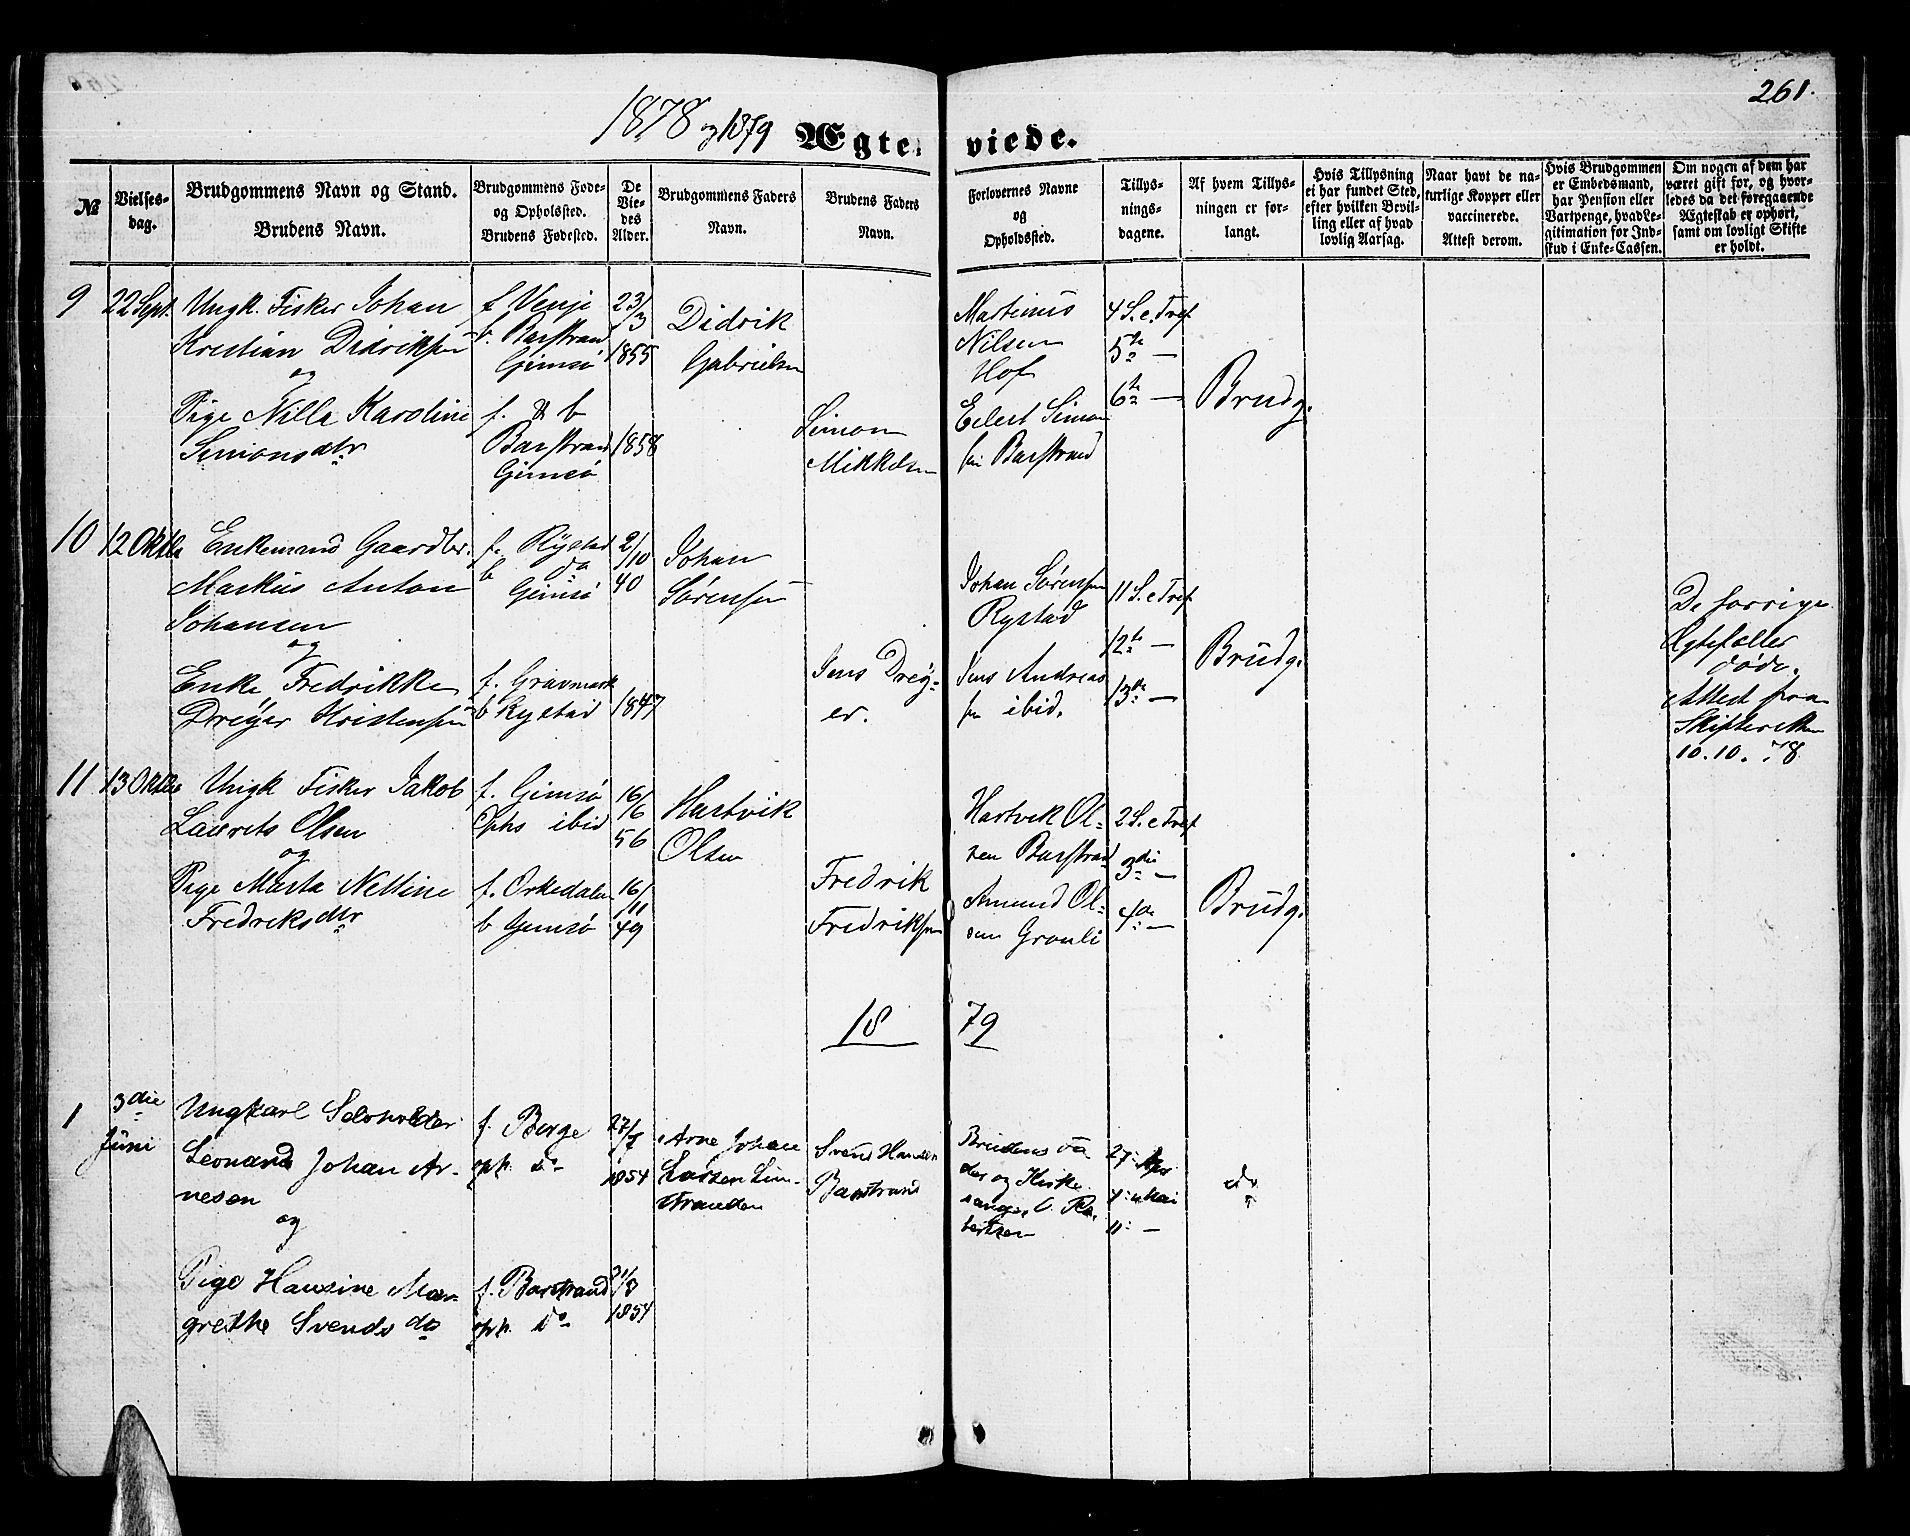 261.
1878 og 1879 Ægte- viede.
№
Vielses-
dag.
Brudgommens Navn og Stand.
Brudens Navn.
Brudgommens Føde-
og Opholsted.
Brudens Fødested.
De
Vie-
des
Alder.
Brudgommens Faders
Navn.
Brudens Faders
Navn.
Forlovernes Navne
og
Opholdssted.
Tillys-
nings-
dagene.
Af hvem Tillys-
ningen er for-
langt.
Hvis Tillysning
ei har fundet Sted,
efter hvilken Bevil-
ling eller af hvad
lovlig Aarsag.
Naar havt de na-
turlige Kopper eller
vaccinerede.
Attest derom.
Hvis Brudgommen
er Embedsmand,
har Pension eller
Vartpenge, hvad Le-
gitimation for Ind-
skud i Enke-Cassen.
Om nogen af dem har
været gift før, og hvor-
ledes da det foregaaende
Ægteskab er ophørt,
samt om lovligt Skifte
er holdt.
9
22 Sept.
Ungk. Fisker Johan
Kristian Didriksen
og
Pige Nille Karoline
Simonsdtr
f. Venje
b. Barstrand
Gimsø
f. & b
Barstrand
Gimsø
23/3
1855
1858
Didrik
Gabrielsen
Simon
Mikkelsen
Martinus
Nilsen
Hof
Eilert Simon
sen Barstrand
4 S. e. Tref
5te —
6te —
Brudg.
10
12 Oktbr
Enkemand Gaardbr.
Markus Anton
Johansen
og
Enke Fredrikke
Dreyer Kristensen
f. Rystad
b do
Gimsø
f. Gravmark
b Rystad
2/10
40
1847
Johan
Sørensen
Jens Drey-
er.
Johan Sørensen
Rystad
Jens Andreas
sen ibid.
11 S. e Tref
12te —
13de —
Brudg.
De forrige
Ægtefæller
døde.
Attest fra
Skifteretten
10.10.78
11
13 Oktbr
Ungk Fisker Jakob
Laurets Olsen
og
Pige Marta Nelline
Fredriksdtr
f. Gimsø
Ophs ibid
f. Orkedalen
b Gimsø
16/6
56
16/11
49
Hartvik
Olsen
Fredrik
Fredriksen
Hartvik Ol-
sen Barstrand
Amund Ol-
sen Gronli
2 S. e Tref
3die —
4de —
Brudg.
1879
1
3die
Juni
Ungkarl Selvholder
Leonard Johan Ar-
nesen
og
Pige Hansine Mar-
grethe Svendsdtr
f. Berge
oph. do
f. Barstrand
oph. do
27/7
1854
21/8
1854
Arne Johan
Larsen Lim-
stranden
Svend Hansen
Barstrand
Brudens Fa
der og Kirke
sanger
27: Apr
4: Mai
11: —
do